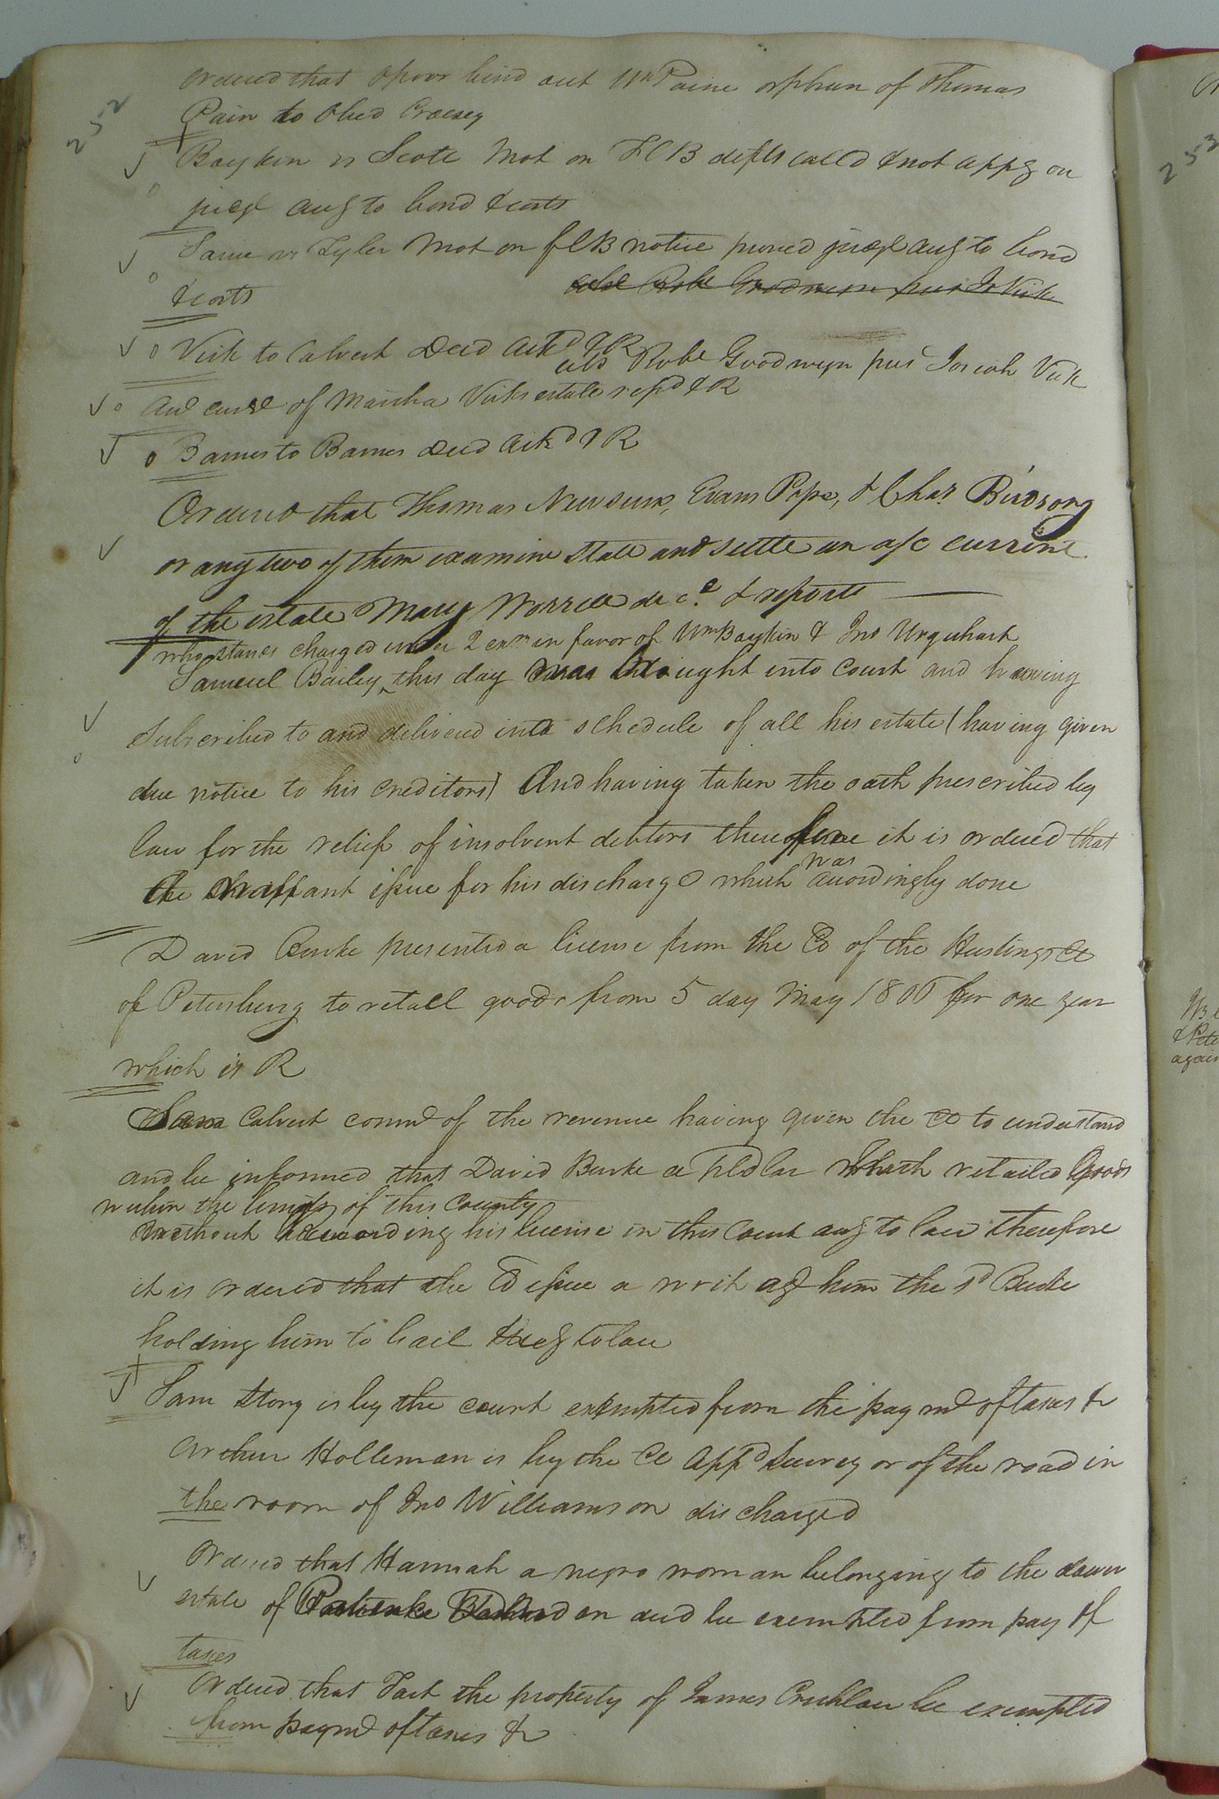 252
Ordered that Opoor bind out Wm Paine orphan of Thomas
Pain to Obed
Baykin vs Scott Mot on FCB defts called & not appg on
judgt aug to bond & costs
Same vs Tyler Mot on fCB notice proved judgt aug to bond
& costs
Vick to Calvert Deed Ackd & R
als Robt Goodwyn pres Josiah Vick
Aud currt of Martha Vicks estate retd & R
Barnes to Barnes deed Ackd & R
Ordered that Thomas Newsum, Evans Pope, & Chas Birdsong
or any two of them examine state and settle an a/c current
of the estate Mary Worrell decd & reports
who stands charged under 2 exns in favor of Wm Baykin & Jno Urquhart
Samuel Bailey this day was brought into court and having
Subscribed to and delivered into schedule of all his estate (having given
due notice to his creditors) And having taken the oath prescribed by
law for the relief of insolvent debtors therefore it is ordered that
the warrant issue for his discharge which was accordingly done
David Burke presented a license from the Co of the Hustings Ct
of Petersburg to retail goods from 5 day May 1800 for one year
which is R
Sam Calvert comr of the revenue having given the Ct to understand
and be informed that David Burke a Pedlar hath retailed Goods
within the limits of this County
without recording his license in this Court aug to law therefore
it is ordered that the Co issue a writ agt him the sd Burke
holding him to bail aug to law
Sam Story is by the court exempted from the paymt of taxes &c
Arthur Holleman is by the Ct Appd Surveyor of the road in
the room of Jno Williamson discharged
Ordered that Hannah a negro woman belonging to the dower
estate of decd be exempted from pay of
taxes
Ordered that the property of James Crichlow be exempted
from paymt of taxes &c
253